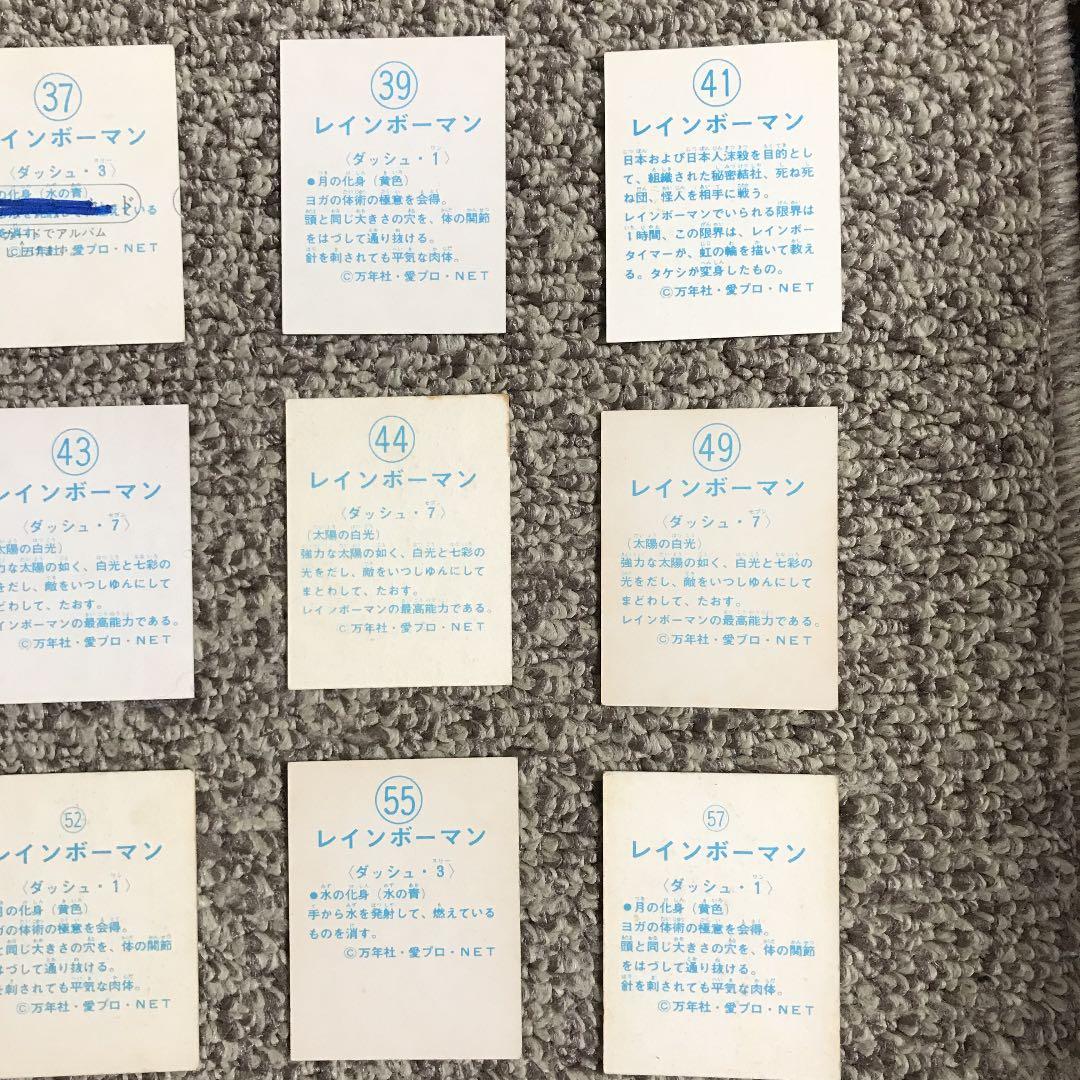 37
インボーマン
〈ダッシュ・3〉
の化身（水の青）
ている
を消す。
ードでアルバム
Ⓒ万年社・愛プロ・NET
39
レインボーマン
〈ダッシュ・1〉
●月の化身（黄色）
ヨガの体術の極意を会得。
頭と同じ大きさの穴を、体の関節
をはづして通り抜ける。
針を刺されても平気な肉体。
Ⓒ万年社・愛プロ・NET
41
レインボーマン
日本および日本人抹殺を目的とし
て、組織された秘密結社、死ね死
ね団、怪人を相手に戦う。
レインボーマンでいられる限界は
1時間、この限界は、レインボー
タイマーが、虹の輪を描いて教え
る。タケシが変身したもの。
Ⓒ万年社・愛プロ・NET
43
レインボーマン
〈ダッシュ・7〉
太陽の白光）
力な太陽の如く、白光と七彩の
をだし、敵をいつしゆんにして
どわして、たおす。
レインボーマンの最高能力である。
Ⓒ万年社・愛プロ・NET
44
レインボーマン
〈ダッシュ・7〉
（太陽の白光）
強力な太陽の如く、白光と七彩の
光をだし、敵をいつしゆんにして
まどわして、たおす。
レインボーマンの最高能力である。
Ⓒ万年社・愛プロ・NET
49
レインボーマン
〈ダッシュ・7〉
（太陽の白光）
強力な太陽の如く、白光と七彩の
光をだし、敵をいつしゆんにして
まどわして、たおす。
レインボーマンの最高能力である。
Ⓒ万年社・愛プロ・NET
52
レインボーマン
〈ダッシュ・1〉
月の化身（黄色）
ヨガの体術の極意を会得。
と同じ大きさの穴を、体の関節
はづして通り抜ける。
を刺されても平気な肉体。
Ⓒ万年社・愛プロ・NET
55
レインボーマン
〈ダッシュ・3〉
●水の化身（水の青）
手から水を発射して、燃えている
ものを消す。
Ⓒ万年社・愛プロ・NET
57
レインボーマン
〈ダッシュ・1〉
●月の化身（黄色）
ヨガの体術の極意を会得。
頭と同じ大きさの穴を、体の関節
をはづして通り抜ける。
針を刺されても平気な肉体。
Ⓒ万年社・愛プロ・NET